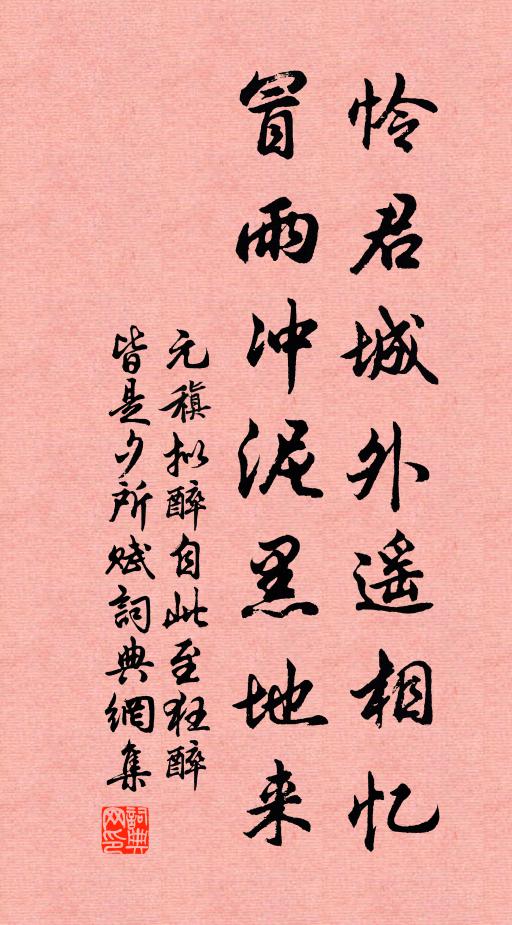 怜君城外遥相忆
冒雨冲泥黑地来
元稹拟醉自此至狂醉
皆是夕所赋词典網集
詞典网印